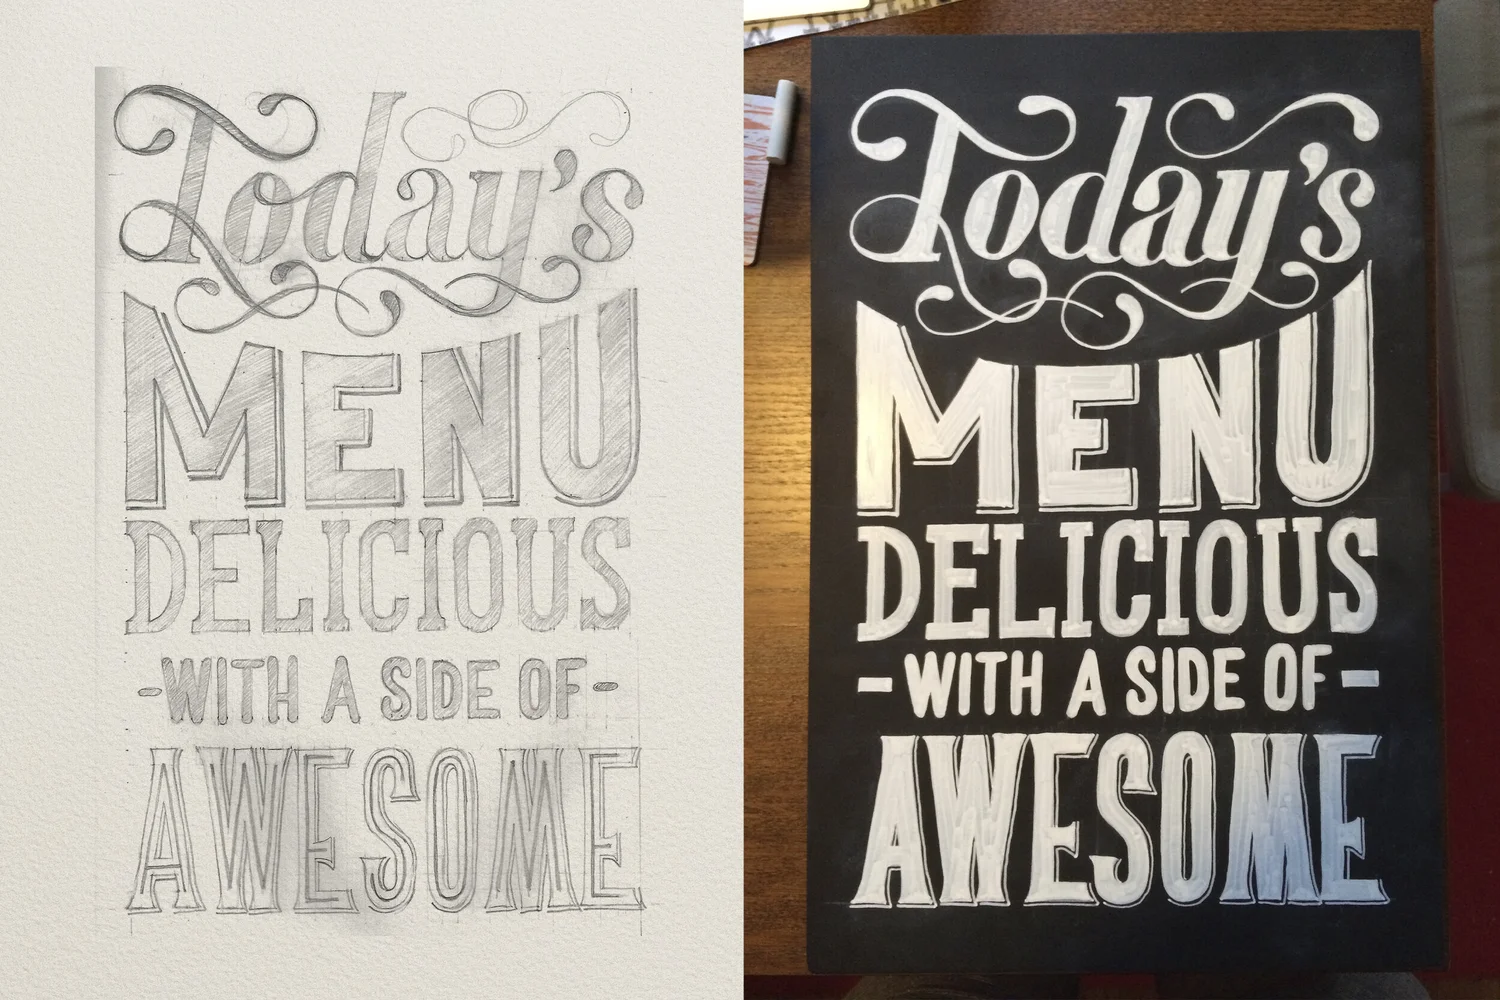 Today's
MENU
DELICIOUS
-WITH A SIDE OF-
AWESOME
Today's
MENU
DELICIOUS
-WITH A SIDE OF-
AWESOME